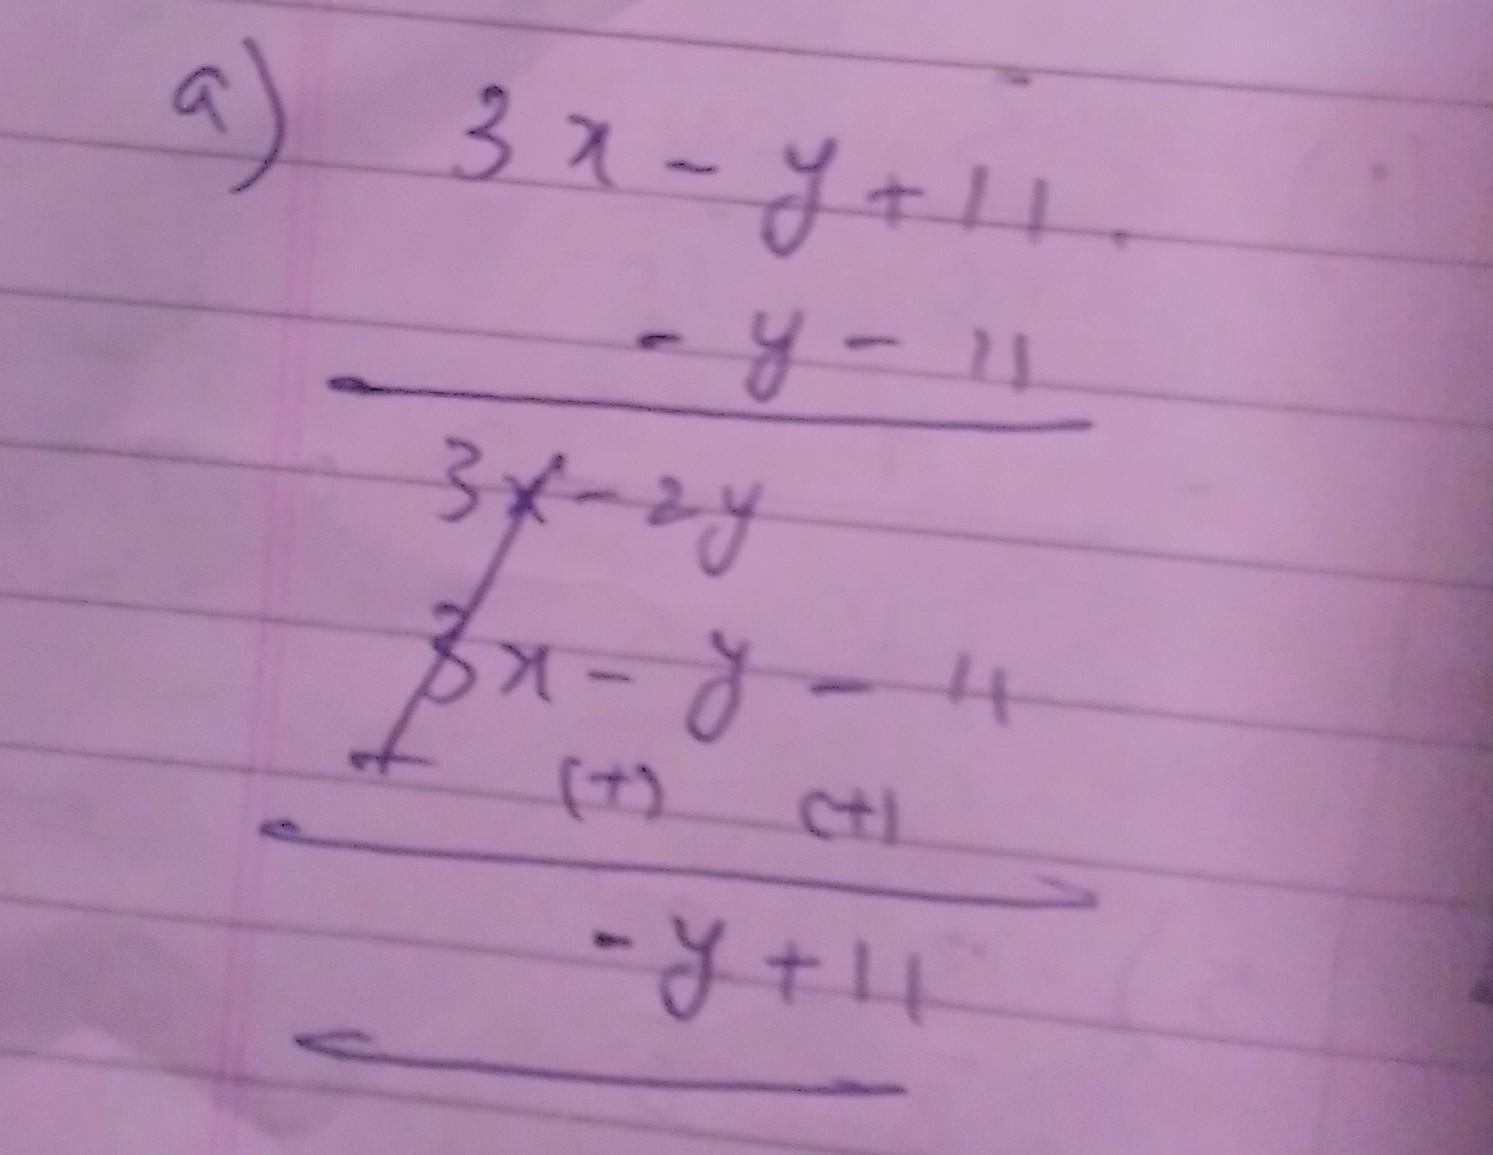 a) 3x - y + 11.
- y - 11
3x - 2y
3x - y - 11
(+) (+)
- y + 11